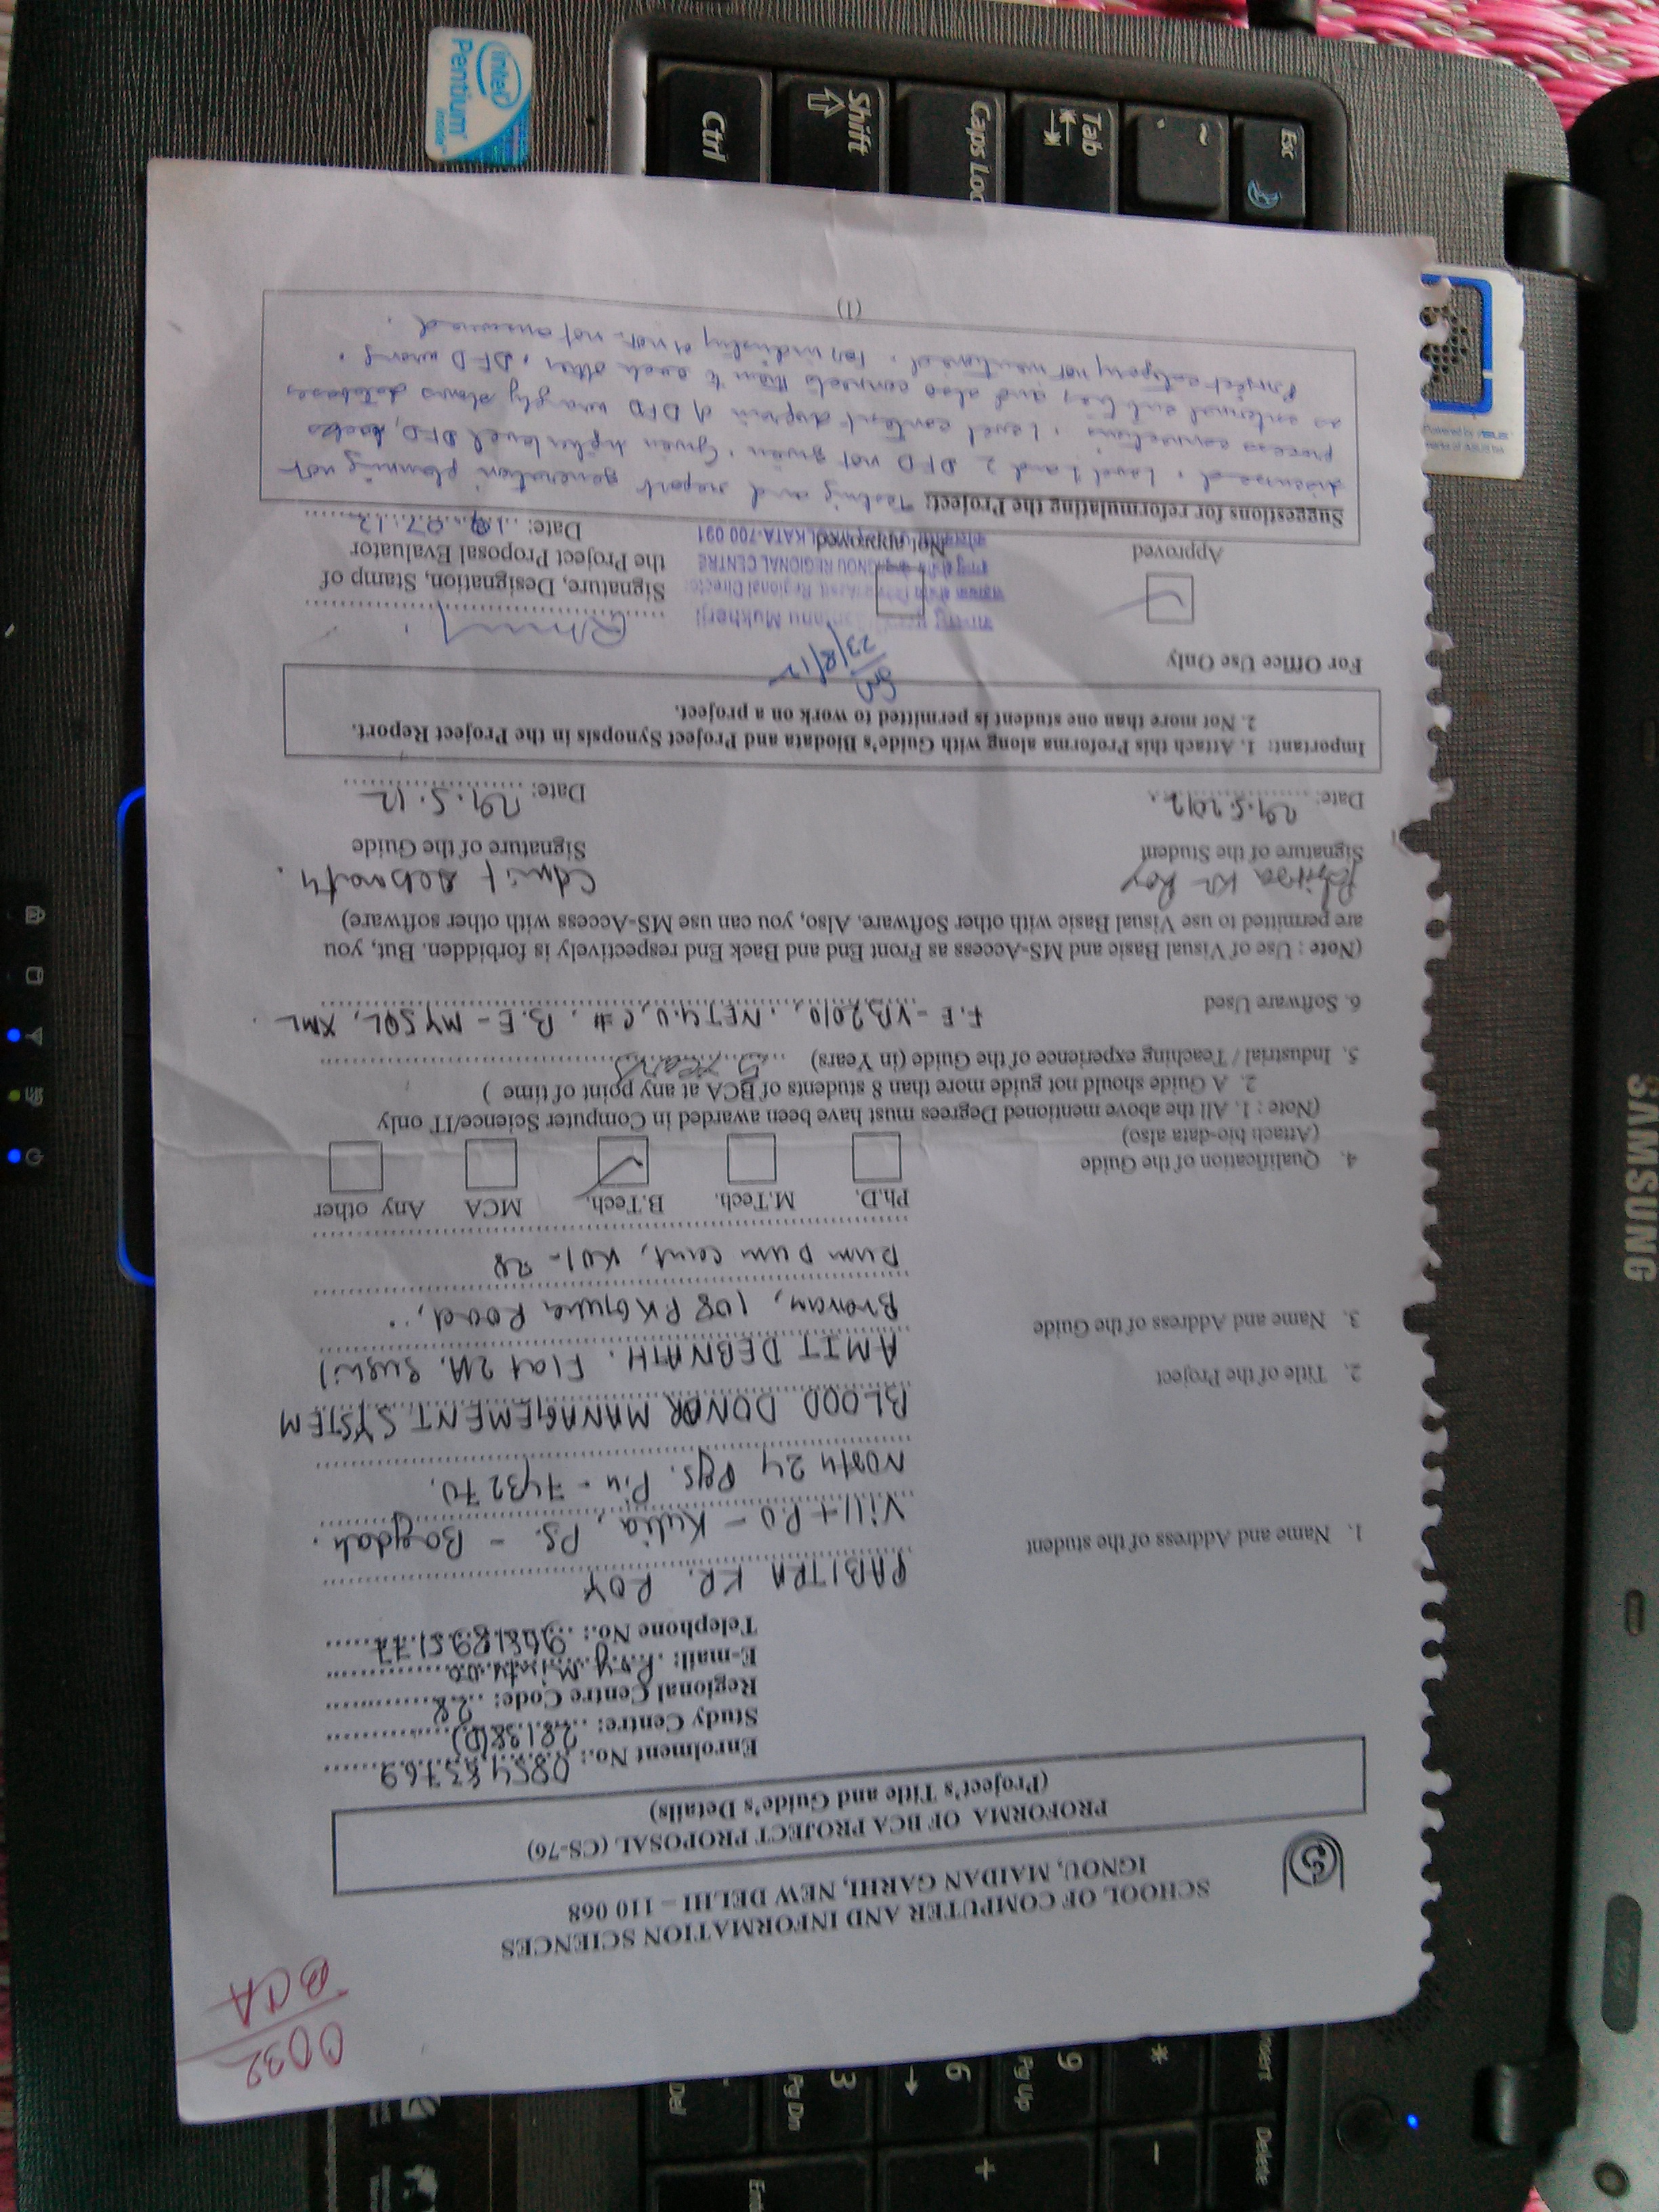 0032
BCA
SCHOOL OF COMPUTER AND INFORMATION SCIENCES
IGNOU, MAIDAN GARHI, NEW DELHI – 110 068
PROFORMA OF BCA PROJECT PROPOSAL (CS-76)
(Project's Title and Guide's Details)
Enrolment No.: 085483769
Study Centre: 28138(D)
Regional Centre Code: 28
E-mail:
Telephone No.: 9681895177
1. Name and Address of the student PABITRA KR. ROY
Vill + P.O - Kulia, PS. - Bagdah.
North 24 Pgs. Pin - 743270.
2. Title of the Project BLOOD DONOR MANAGEMENT SYSTEM
3. Name and Address of the Guide AMIT DEBNATH. Flat 2A,
108 Road,
Dum Dum Cant, Kol- 28
Ph.D. M.Tech. B.Tech. MCA Any other
4. Qualification of the Guide
(Attach bio-data also)
(Note : 1. All the above mentioned Degrees must have been awarded in Computer Science/IT only
2. A Guide should not guide more than 8 students of BCA at any point of time )
5. Industrial / Teaching experience of the Guide (in Years) 5 years
6. Software Used F.E - VB2010, .NET 4.0, C#, B.E - MYSQL, XML
(Note : Use of Visual Basic and MS-Access as Front End and Back End respectively is forbidden. But, you
are permitted to use Visual Basic with other Software. Also, you can use MS-Access with other software)
Pabitra Kr Roy Amit Debnath.
Signature of the Student Signature of the Guide
Date: 29.5.2012. Date: 29.5.12
Important: 1. Attach this Proforma along with Guide's Biodata and Project Synopsis in the Project Report.
2. Not more than one student is permitted to work on a project.
For Office Use Only
23/8/12
Mukherji
Regional Director
IGNOU REGIONAL CENTRE
KOLKATA-700 091
Approved Not approved
Signature, Designation, Stamp of
the Project Proposal Evaluator
Date: 19.07.12
Suggestions for reformulating the Project: Testing and report generation planning not
discussed. Level 1 and 2 DFD not given. Given higher level DFD, lacks
process connections. Level context diagram of DFD wrongly shows databases
as external entities and also connects them to each other. DFD wrong.
Project category not mentioned. For industry or not - not answered.
(1)
intel
Pentium
inside
Ctrl
Shift
Caps Loc
Tab
~
Esc
SAMSUNG
Powered by ASUS
Del
Pg Dn
3
6
9
Pg Up
*
Insert
Delete
-
+